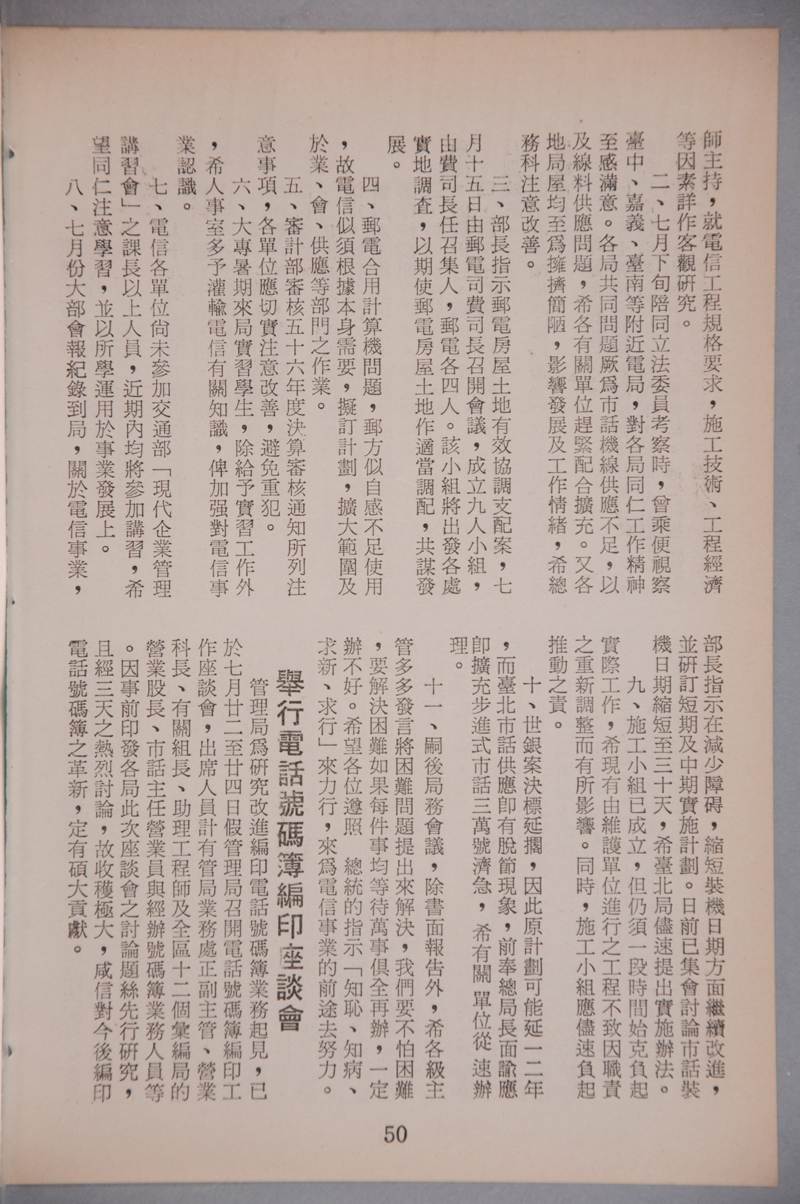 師主持，就電信工程規格要求，施工技術、工程經濟
等因素詳作客觀研究。
二、七月下旬陪同立法委員考察時，曾乘便視察
臺中、嘉義、臺南等附近電局，對各局同仁工作精神
至感滿意。各局共同問題厥爲市話機線供應不足，以
及線料供應問題，希各有關單位趕緊配合擴充。又各
地局屋均至爲擁擠簡陋，影響發展及工作情緒，希總
務科注意改善。
三、部長指示郵電房屋土地有效協調支配案，七
月十五日由郵電司費司長召開會議，成立九人小組，
由費司長任召集人，郵電各四人。該小組將出發各處
實地調查，以期使郵電房屋土地作適當調配，共謀發
展。
四、郵電合用計算機問題，郵方似自感不足使用
，故電信似須根據本身需要，擬訂計劃，擴大範圍及
於業、會、供應等部門之作業。
五、審計部審核五十六年度決算審核通知所列注
意事項，各單位應切實注意改善，避免重犯。
六、大專暑期來局實習學生，除給予實習工作外
，希人事室多予灌輸電信有關知識，俾加强對電信事
業認識。
七、電信各單位尙未參加交通部「現代企業管理
講習會」之課長以上人員，近期內均將參加講習，希
望同仁注意學習，並以所學運用於事業發展上。
八、七月份大部會報紀錄到局，關於電信事業，
部長指示在減少障碍，縮短裝機日期方面繼續改進，
並研訂短期及中期實施計劃。日前已集會討論市話裝
機日期縮短至三十天，希臺北局儘速提出實施辦法。
九、施工小組已成立，但仍須一段時間始克負起
實際工作，希現有由維護單位進行之工程不致因職責
之重新調整而有所影響。同時，施工小組應儘速負起
推動之責。
十、世銀案決標延擱，因此原計劃可能延一二年
，而臺北市話供應卽有脫節現象，前奉總局長面諭應
卽擴充步進式市話三萬號濟急，希有關單位從速辦
理。
十一、嗣後局務會議，除書面報告外，希各級主
管多多發言將困難問題提出來解決，我們要不怕困難
，要解決困難如果每件事均等待萬事俱全再辦，一定
辦不好。希望各位遵照　總統的指示「知恥、知病、
求新、求行」來力行，來爲電信事業的前途去努力。
舉行電話號碼簿編印座談會
管理局爲研究改進編印電話號碼簿業務起見，已
於七月廿二至廿四日假管理局召開電話號碼簿編印工
作座談會，出席人員計有管局業務處正副主管、營業
科長、有關組長、助理工程師及全區十二個彙編局的
營業股長、市話主任營業員與經辦號碼簿業務人員等
。因事前印發各局此次座談會之討論題綜先行研究，
且經三天之熱烈討論，故收穫極大，咸信對今後編印
電話號碼簿之革新，定有碩大貢獻。
50